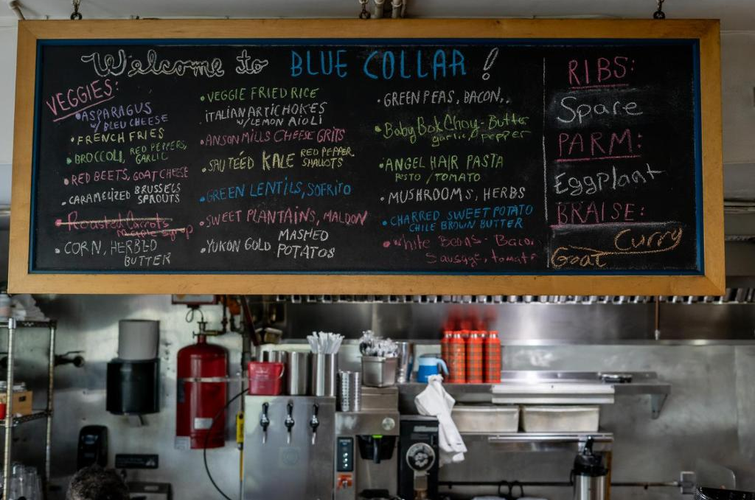 Welcome to BLUE COLLAR!
VEGGIES:
• ASPARAGUS
w/ BLEU CHEESE
• FRENCH FRIES
• BROCCOLI, RED PEPPERS,
GARLIC
• RED BEETS, GOAT CHEESE
• CARAMELIZED BRUSSELS
SPROUTS
• Roasted Carrots
• CORN, HERBED
BUTTER
• VEGGIE FRIED RICE
ITALIAN ARTICHOKES
w/ LEMON AIOLI
• ANSON MILLS CHEESE GRITS
• SAUTÉED KALE RED PEPPER
SHALLOTS
• GREEN LENTILS, SOFRITO
• SWEET PLANTAINS, MALDON
• YUKON GOLD MASHED
POTATOES
• GREEN PEAS, BACON,.
• Baby Bok Choy - Butter
garlic, pepper
• ANGEL HAIR PASTA
PESTO / TOMATO
• MUSHROOMS, HERBS
• CHARRED SWEET POTATO
CHILE BROWN BUTTER
• White Beans - Bacon
Sausage, tomato
RIBS:
Spare
PARM:
Eggplant
BRAISE:
Curry
Goat